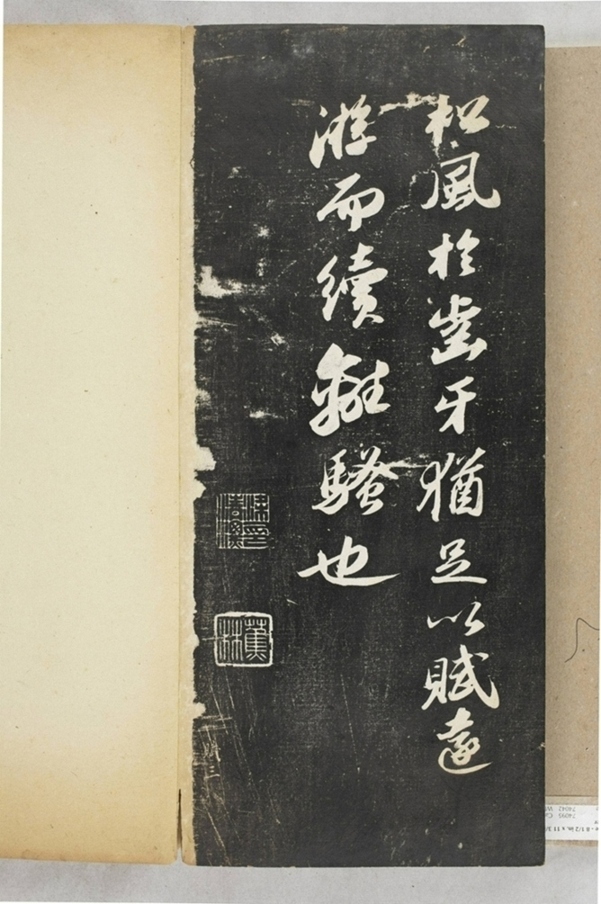 松風於齒牙猶足以賦遠
游而續離騷也
蕉林